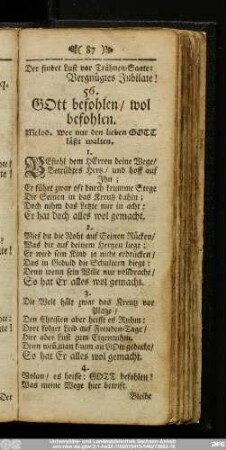 ( 87 )
Der findet Lust vor Trähnen-Saate:
Vergnügtes Jubilate!
56.
GOtt befohlen/ wol
befohlen.
Melod. wer nur den lieben GOTT
läßt walten.
1.
BEfiehl dem HErren deine Wege/
Betrübtes Hertz/ und hoff auf
Ihn;
Er führt zwar oft durch krumme Stege
Die Seinen in das Kreutz dahin;
Doch nihm das Letzte nur in acht;
Er hat doch alles wol gemacht.
2.
Wirf du die Noht auf Seinen Rücken/
Was dir auf deinem Hertzen liegt:
Er wird sein Kind ja nicht erdrücken/
Das in Geduld die Schultern biegt:
Denn wenn sein Wille nur vollbracht/
So hat Er alles wol gemacht.
3.
Die Welt hält zwar das Kreutz vor
Plage/
Den Christen aber heist es Ruhm:
Dort folget Leid auf Freuden-Tage/
Hier aber Lust zum Eigenthum.
Denn wenn man kaum an GOtt gedacht/
So hat Er alles wol gemacht.
4.
Wolan/ es heisse: GOTT befohlen!
Was meine Wege hier betrift.
Bleibe
Der